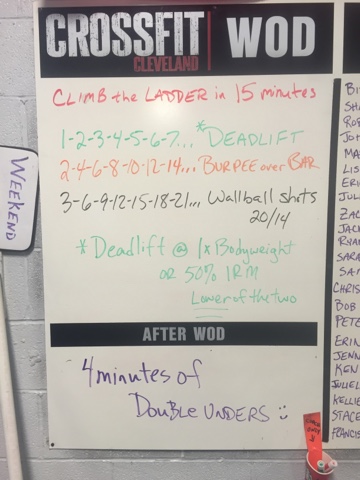 CROSSFIT
CLEVELAND
WOD
CLIMB the LADDER in 15 minutes
1-2-3-4-5-6-7... *DEADLIFT
2-4-6-8-10-12-14... BURPEE over BAR
3-6-9-12-15-18-21... Wallball shots
20/14
*Deadlift @ 1x Bodyweight
OR 50% 1RM
Lower of the two
AFTER WOD
4 minutes of
DOUBLE UNDERS :)
WEEKEND
ERIN
JENN
KEN
BOB
PETE
CHRIS
KELLIE
STACE
FRANCIS